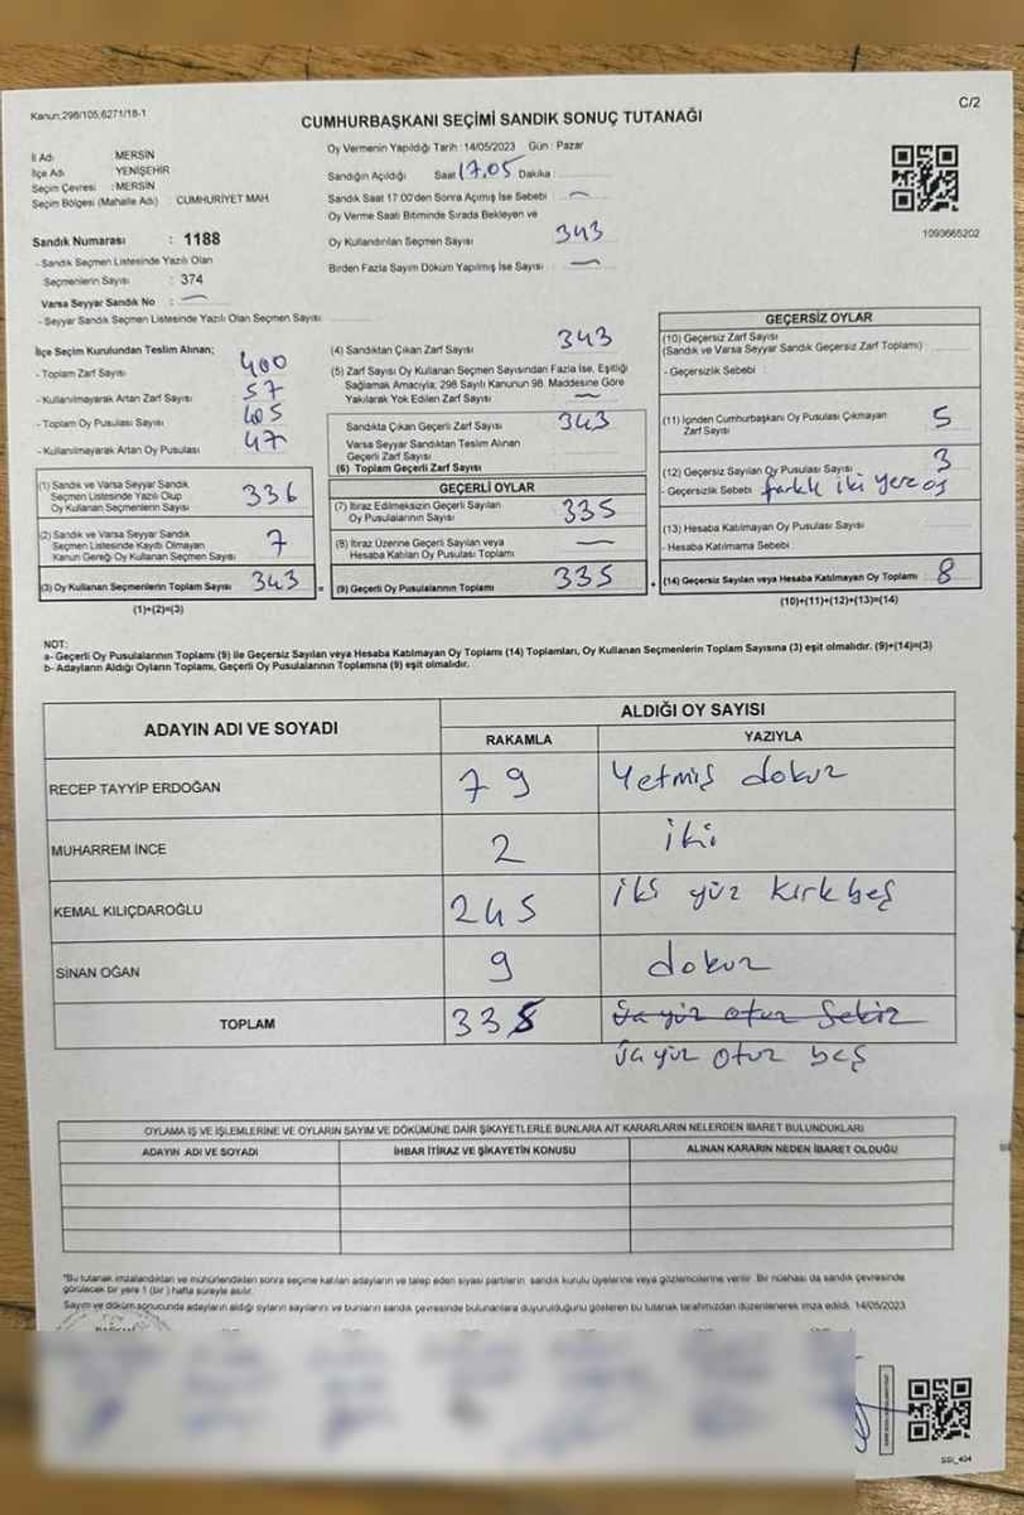 Kanun:298/105;6271/18-1
C/2
CUMHURBAŞKANI SEÇİMİ SANDIK SONUÇ TUTANAĞI
İl Adı : MERSİN
İlçe Adı : YENİŞEHİR
Seçim Çevresi : MERSİN
Seçim Bölgesi (Mahalle Adı) : CUMHURİYET MAH
Sandık Numarası : 1188
- Sandık Seçmen Listesinde Yazılı Olan
Seçmenlerin Sayısı : 374
Varsa Seyyar Sandık No : —
- Seyyar Sandık Seçmen Listesinde Yazılı Olan Seçmen Sayısı:
Oy Vermenin Yapıldığı Tarih : 14/05/2023 Gün : Pazar
Sandığın Açıldığı Saat 17.05 Dakika
Sandık Saat 17:00'den Sonra Açımış İse Sebebi : —
Oy Verme Saati Bitiminde Sırada Bekleyen ve
Oy Kullandırılan Seçmen Sayısı : 343
Birden Fazla Sayım Döküm Yapılmış İse Sayısı : —
1090665202
İlçe Seçim Kurulundan Teslim Alınan;
- Toplam Zarf Sayısı : 400
- Kullanılmayarak Artan Zarf Sayısı : 57
- Toplam Oy Pusulası Sayısı : 405
- Kullanılmayarak Artan Oy Pusulası : 47
(1) Sandık ve Varsa Seyyar Sandık
Seçmen Listesinde Yazılı Olup
Oy Kullanan Seçmenlerin Sayısı 336
(2) Sandık ve Varsa Seyyar Sandık
Seçmen Listesinde Kayıtlı Olmayan
Kanun Gereği Oy Kullanan Seçmen Sayısı 7
(3) Oy Kullanan Seçmenlerin Toplam Sayısı 343
(1)+(2)=(3)
(4) Sandıktan Çıkan Zarf Sayısı 343
(5) Zarf Sayısı Oy Kullanan Seçmen Sayısından Fazla İse, Eşitliği
Sağlamak Amacıyla; 298 Sayılı Kanunun 98. Maddesine Göre
Yakılarak Yok Edilen Zarf Sayısı —
Sandıkta Çıkan Geçerli Zarf Sayısı 343
Varsa Seyyar Sandıktan Teslim Alınan
Geçerli Zarf Sayısı
(6) Toplam Geçerli Zarf Sayısı
GEÇERLİ OYLAR
(7) İtiraz Edilmeksizin Geçerli Sayılan
Oy Pusulalarının Sayısı 335
(8) İtiraz Üzerine Geçerli Sayılan veya
Hesaba Katılan Oy Pusulası Toplamı —
= (9) Geçerli Oy Pusulalarının Toplamı 335
GEÇERSİZ OYLAR
(10) Geçersiz Zarf Sayısı
(Sandık ve Varsa Seyyar Sandık Geçersiz Zarf Toplamı)
- Geçersizlik Sebebi :
(11) İçinden Cumhurbaşkanı Oy Pusulası Çıkmayan
Zarf Sayısı 5
(12) Geçersiz Sayılan Oy Pusulası Sayısı 3
- Geçersizlik Sebebi farklı iki yere oy
(13) Hesaba Katılmayan Oy Pusulası Sayısı
- Hesaba Katılmama Sebebi
(14) Geçersiz Sayılan veya Hesaba Katılmayan Oy Toplamı 8
(10)+(11)+(12)+(13)=(14)
NOT:
a- Geçerli Oy Pusulalarının Toplamı (9) ile Geçersiz Sayılan veya Hesaba Katılmayan Oy Toplamı (14) Toplamları, Oy Kullanan Seçmenlerin Toplam Sayısına (3) eşit olmalıdır. (9)+(14)=(3)
b- Adayların Aldığı Oyların Toplamı, Geçerli Oy Pusulalarının Toplamına (9) eşit olmalıdır.
ADAYIN ADI VE SOYADI
ALDIĞI OY SAYISI
RAKAMLA YAZIYLA
RECEP TAYYİP ERDOĞAN 79 Yetmiş dokuz
MUHARREM İNCE 2 iki
KEMAL KILIÇDAROĞLU 245 iki yüz kırk beş
SİNAN OĞAN 9 dokuz
TOPLAM 335 üç yüz otuz sekiz
üç yüz otuz beş
OYLAMA İŞ VE İŞLEMLERİNE VE OYLARIN SAYIM VE DÖKÜMÜNE DAİR ŞİKAYETLERLE BUNLARA AİT KARARLARIN NELERDEN İBARET BULUNDUKLARI
ADAYIN ADI VE SOYADI İHBAR İTİRAZ VE ŞİKAYETİN KONUSU ALINAN KARARIN NEDEN İBARET OLDUĞU
*Bu tutanak imzalandıktan ve mühürlendikten sonra seçime katılan adayların ve talep eden siyasi partilerin, sandık kurulu üyelerine veya gözlemcilerine verilir. Bir nüshası da sandık çevresinde
görülecek bir yere 1 (bir) hafta süreyle asılır.
Sayım ve döküm sonucunda adayların aldığı oyların sayılarını ve bunların sandık çevresinde bulunanlara duyurulduğunu gösteren bu tutanak tarafımızdan düzenlenerek imza edildi. 14/05/2023